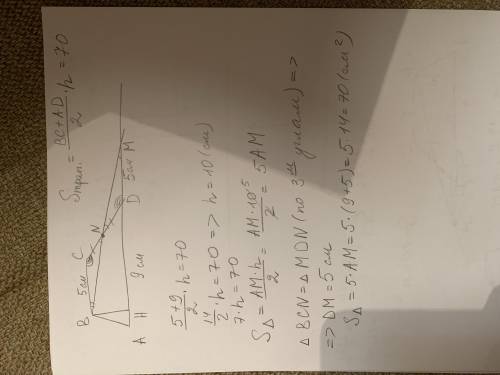 B 5см C
N
A H 9 см D 5см M
Sтрап. = BC+AD/2 · h = 70
5+9/2 · h = 70
14/2 · h = 70 => h = 10 (см)
7 · h = 70
S△ = AM·h/2 = AM·10⁵/2 = 5AM
△ BCN = △ MDN (по 3ᵐ углам) =>
=> DM = 5 см
S△ = 5 · AM = 5 · (9+5) = 5·14 = 70 (см²)